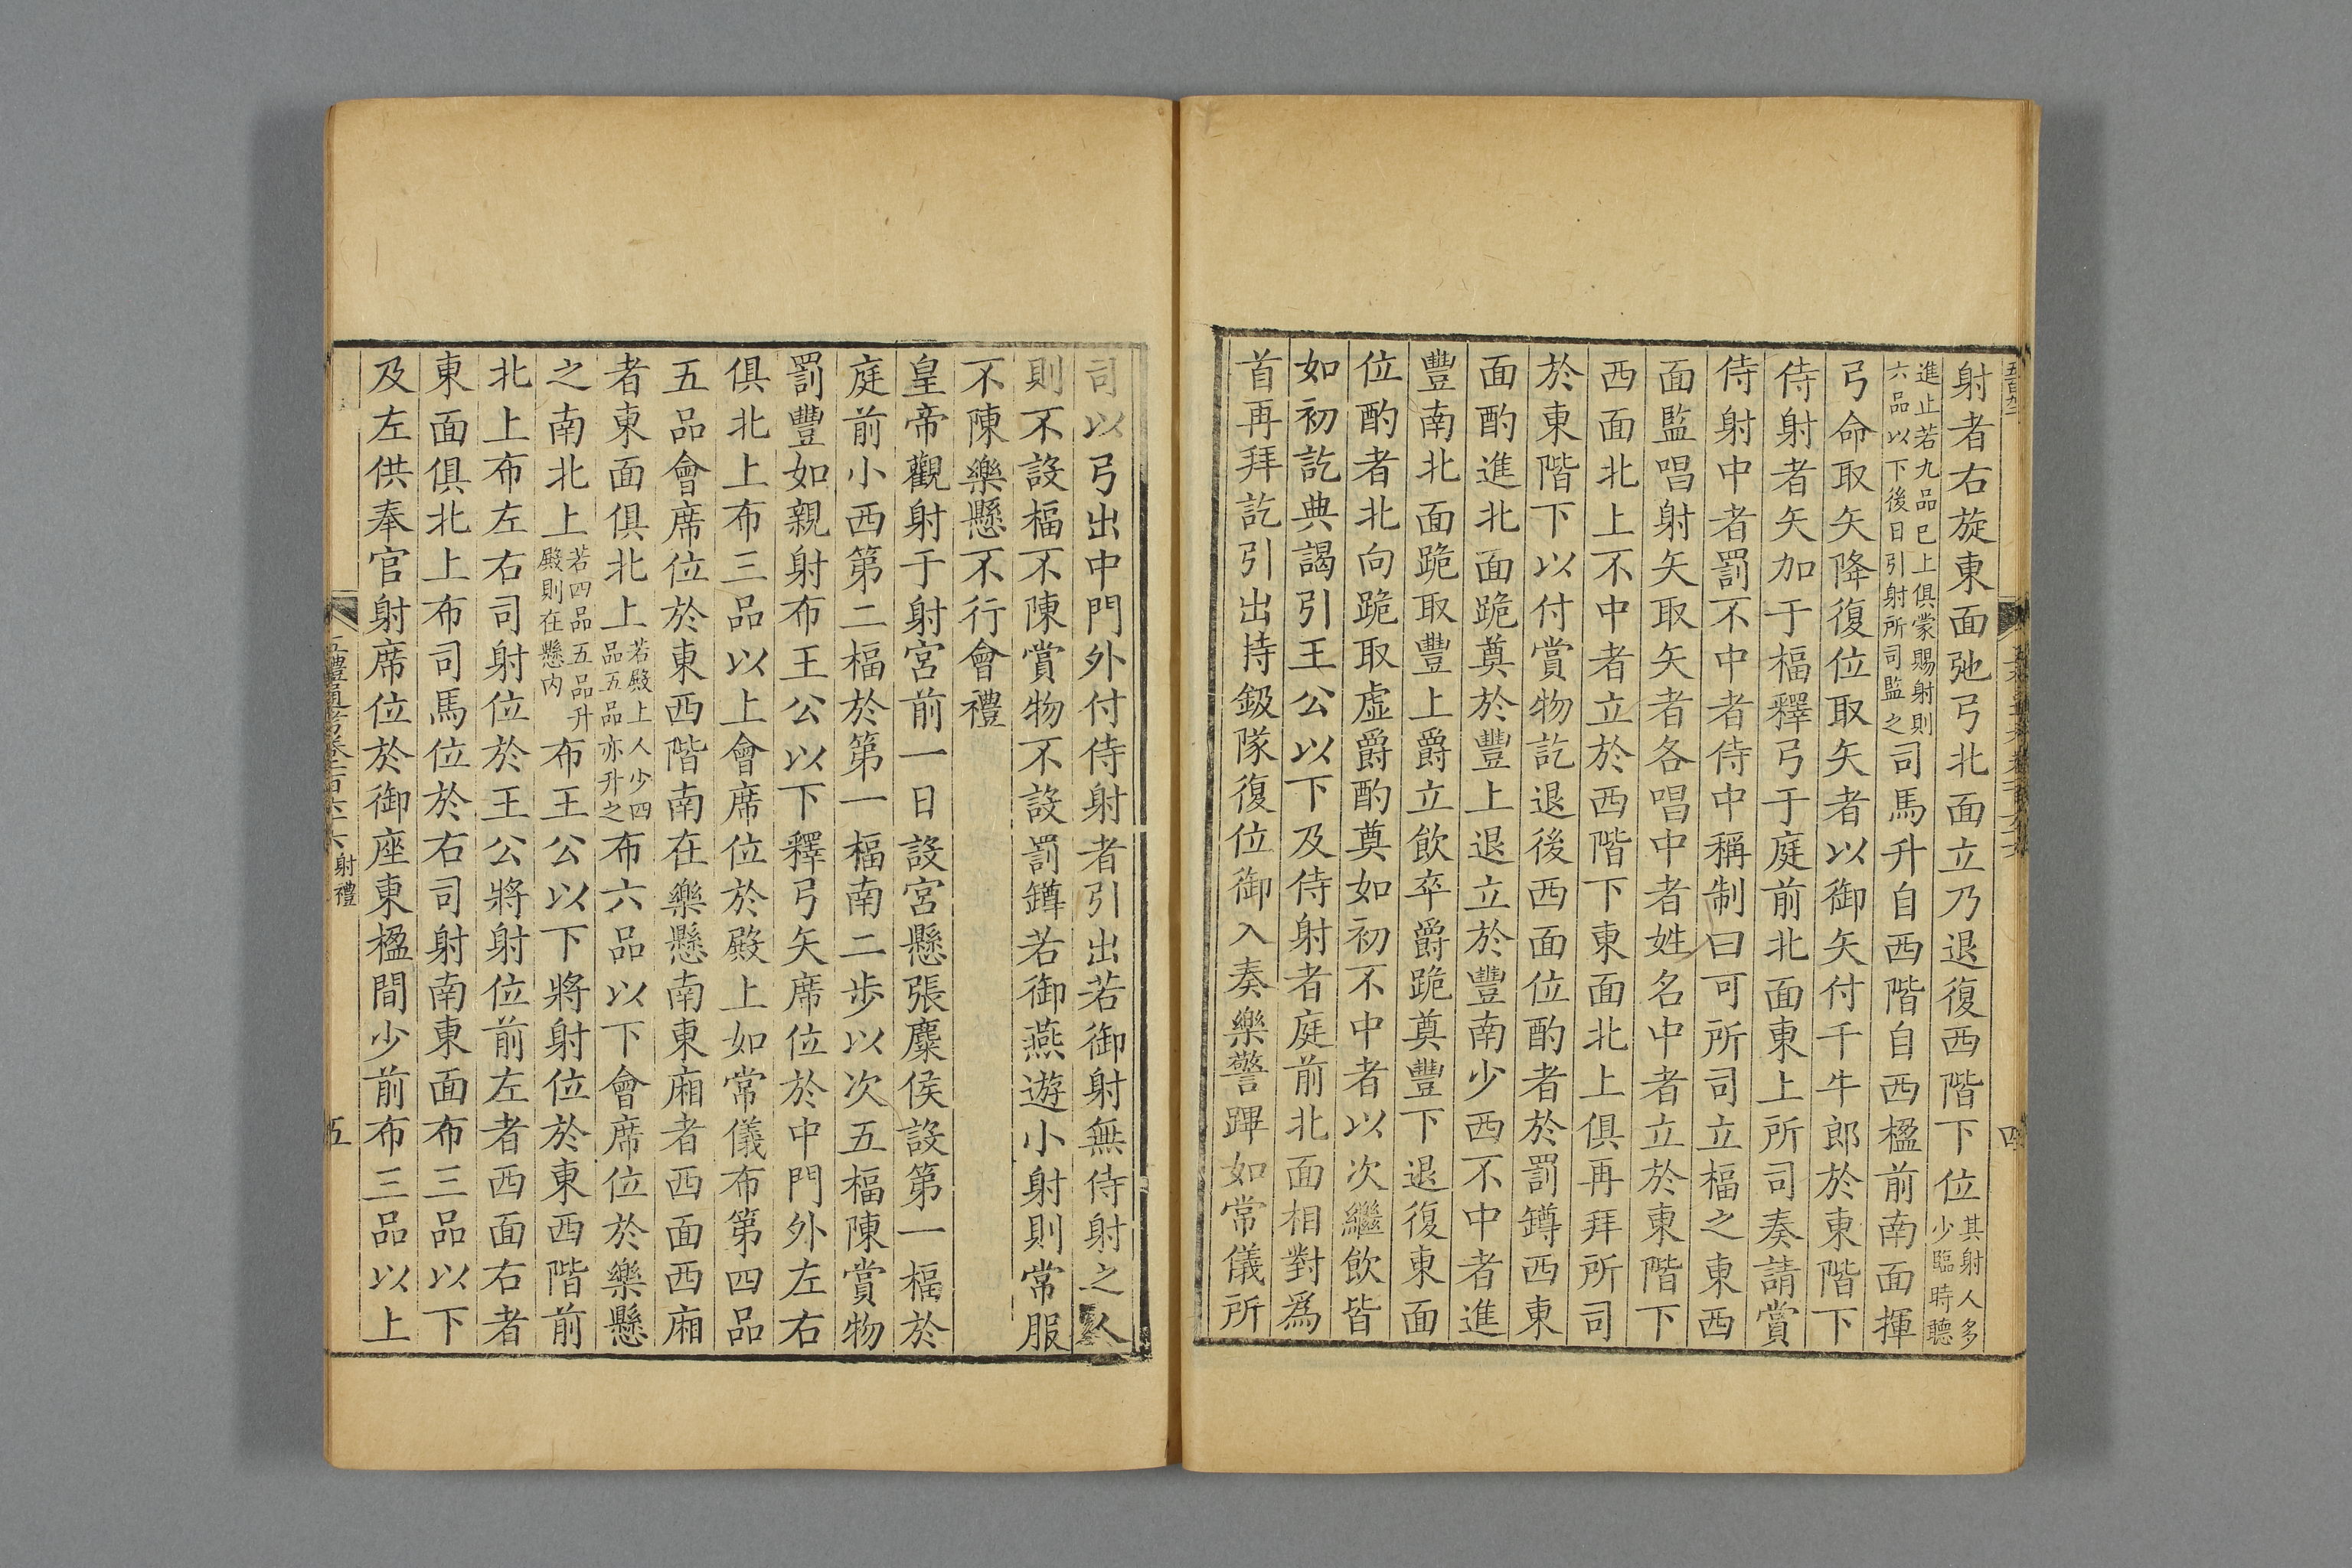 射者右旋東面弛弓北面立乃退復西階下位其射人多少臨時聽
進止若九品已上俱蒙賜射則六品以下後日引射所司監之司馬升自西階自西楹前南面揮
弓命取矢降復位取矢者以御矢付千牛郎於東階下
侍射者矢加于楅釋弓于庭前北面東上所司奏請賞
侍射中者罰不中者侍中稱制曰可所司立楅之東西
面監唱射矢取矢者各唱中者姓名中者立於東階下
西面北上不中者立於西階下東面北上俱再拜所司
於東階下以付賞物訖退後西面位酌者於罰罇西東
面酌進北面跪奠於豐上退立於豐南少西不中者進
豐南北面跪取豐上爵立飲卒爵跪奠豐下退復東面
位酌者北向跪取虛爵酌奠如初不中者以次繼飲皆
如初訖典謁引王公以下及侍射者庭前北面相對爲
首再拜訖引出持鈒隊復位御入奏樂警蹕如常儀所
司以弓出中門外付侍射者引出若御射無侍射之人
則不設楅不陳賞物不設罰罇若御燕遊小射則常服
不陳樂懸不行會禮
皇帝觀射于射宮前一日設宮懸張麋侯設第一楅於
庭前小西第二楅於第一楅南二步以次五楅陳賞物
罰豐如親射布王公以下釋弓矢席位於中門外左右
俱北上布三品以上會席位於殿上如常儀布第四品
五品會席位於東西階南在樂懸南東廂者西面西廂
者東面俱北上若殿上人少四品五品亦升之布六品以下會席位於樂懸
之南北上若四品五品升殿則在懸內布王公以下將射位於東西階前
北上布左右司射位於王公將射位前左者西面右者
東面俱北上布司馬位於右司射南東面布三品以下
及左供奉官射席位於御座東楹間少前布三品以上
射禮
五